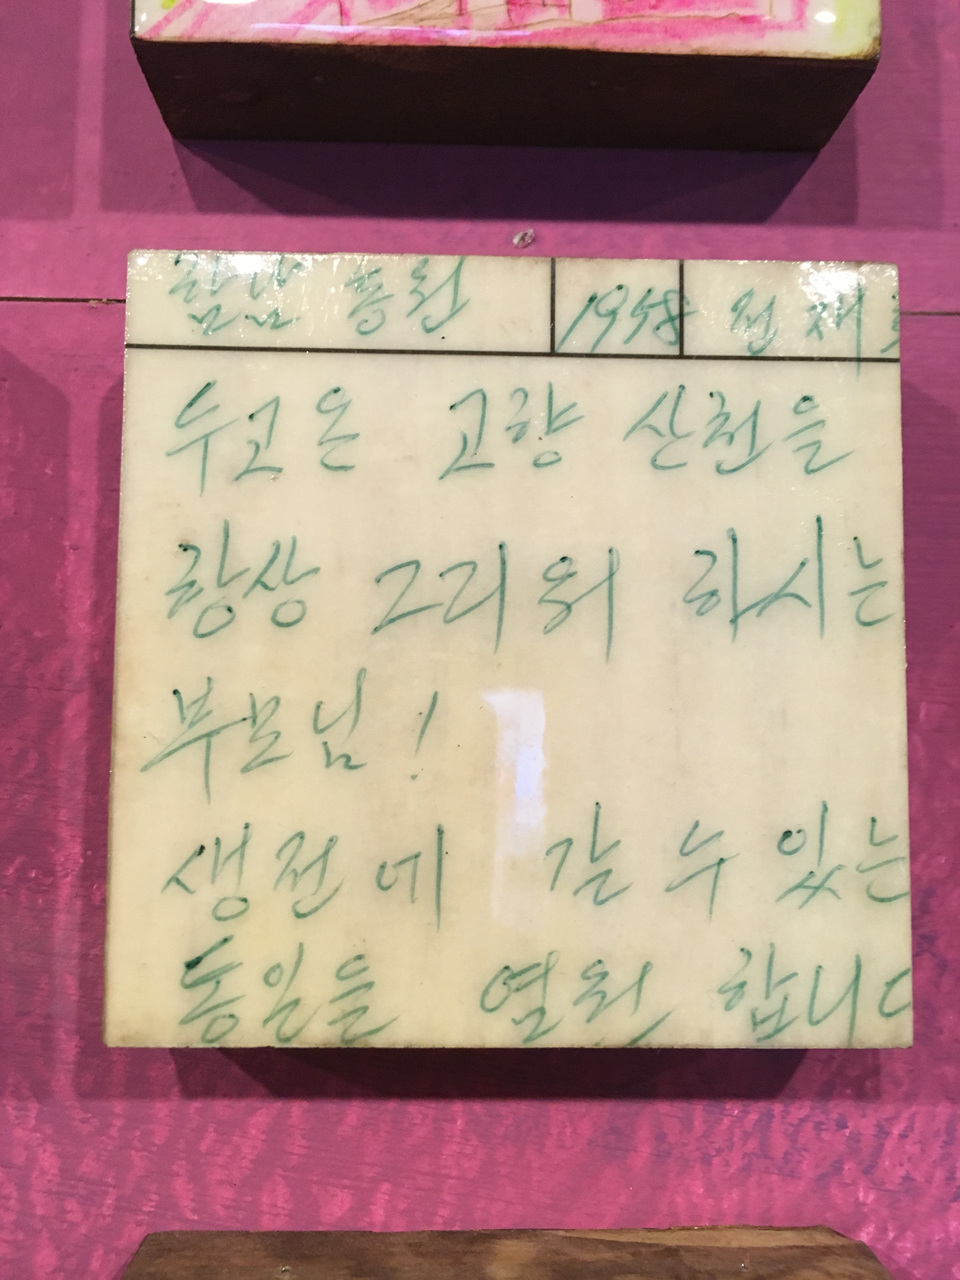 함남 흥원 1958 정재
두고온 고향 산천을
항상 그리워 하시는
부모님!
생전에 갈 수 있는
통일을 염원 합니다